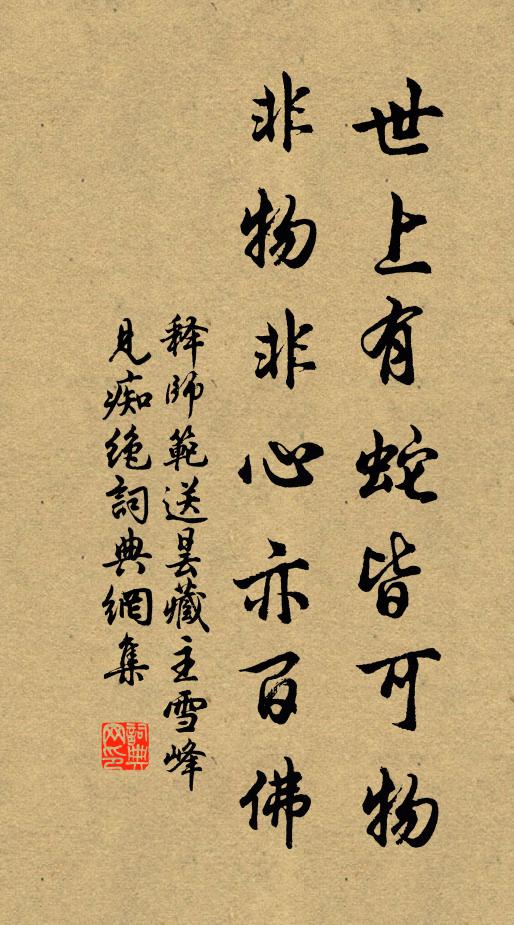 世上有蛇皆可物
非物非心亦百佛
释師範送曇藏主雪峰
見痴绝詞典網集
詞典网印